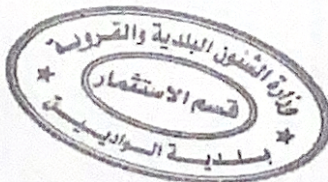 وزارة الشئون البلدية والقروية
قسم الاستثمار
بلدية الواديين